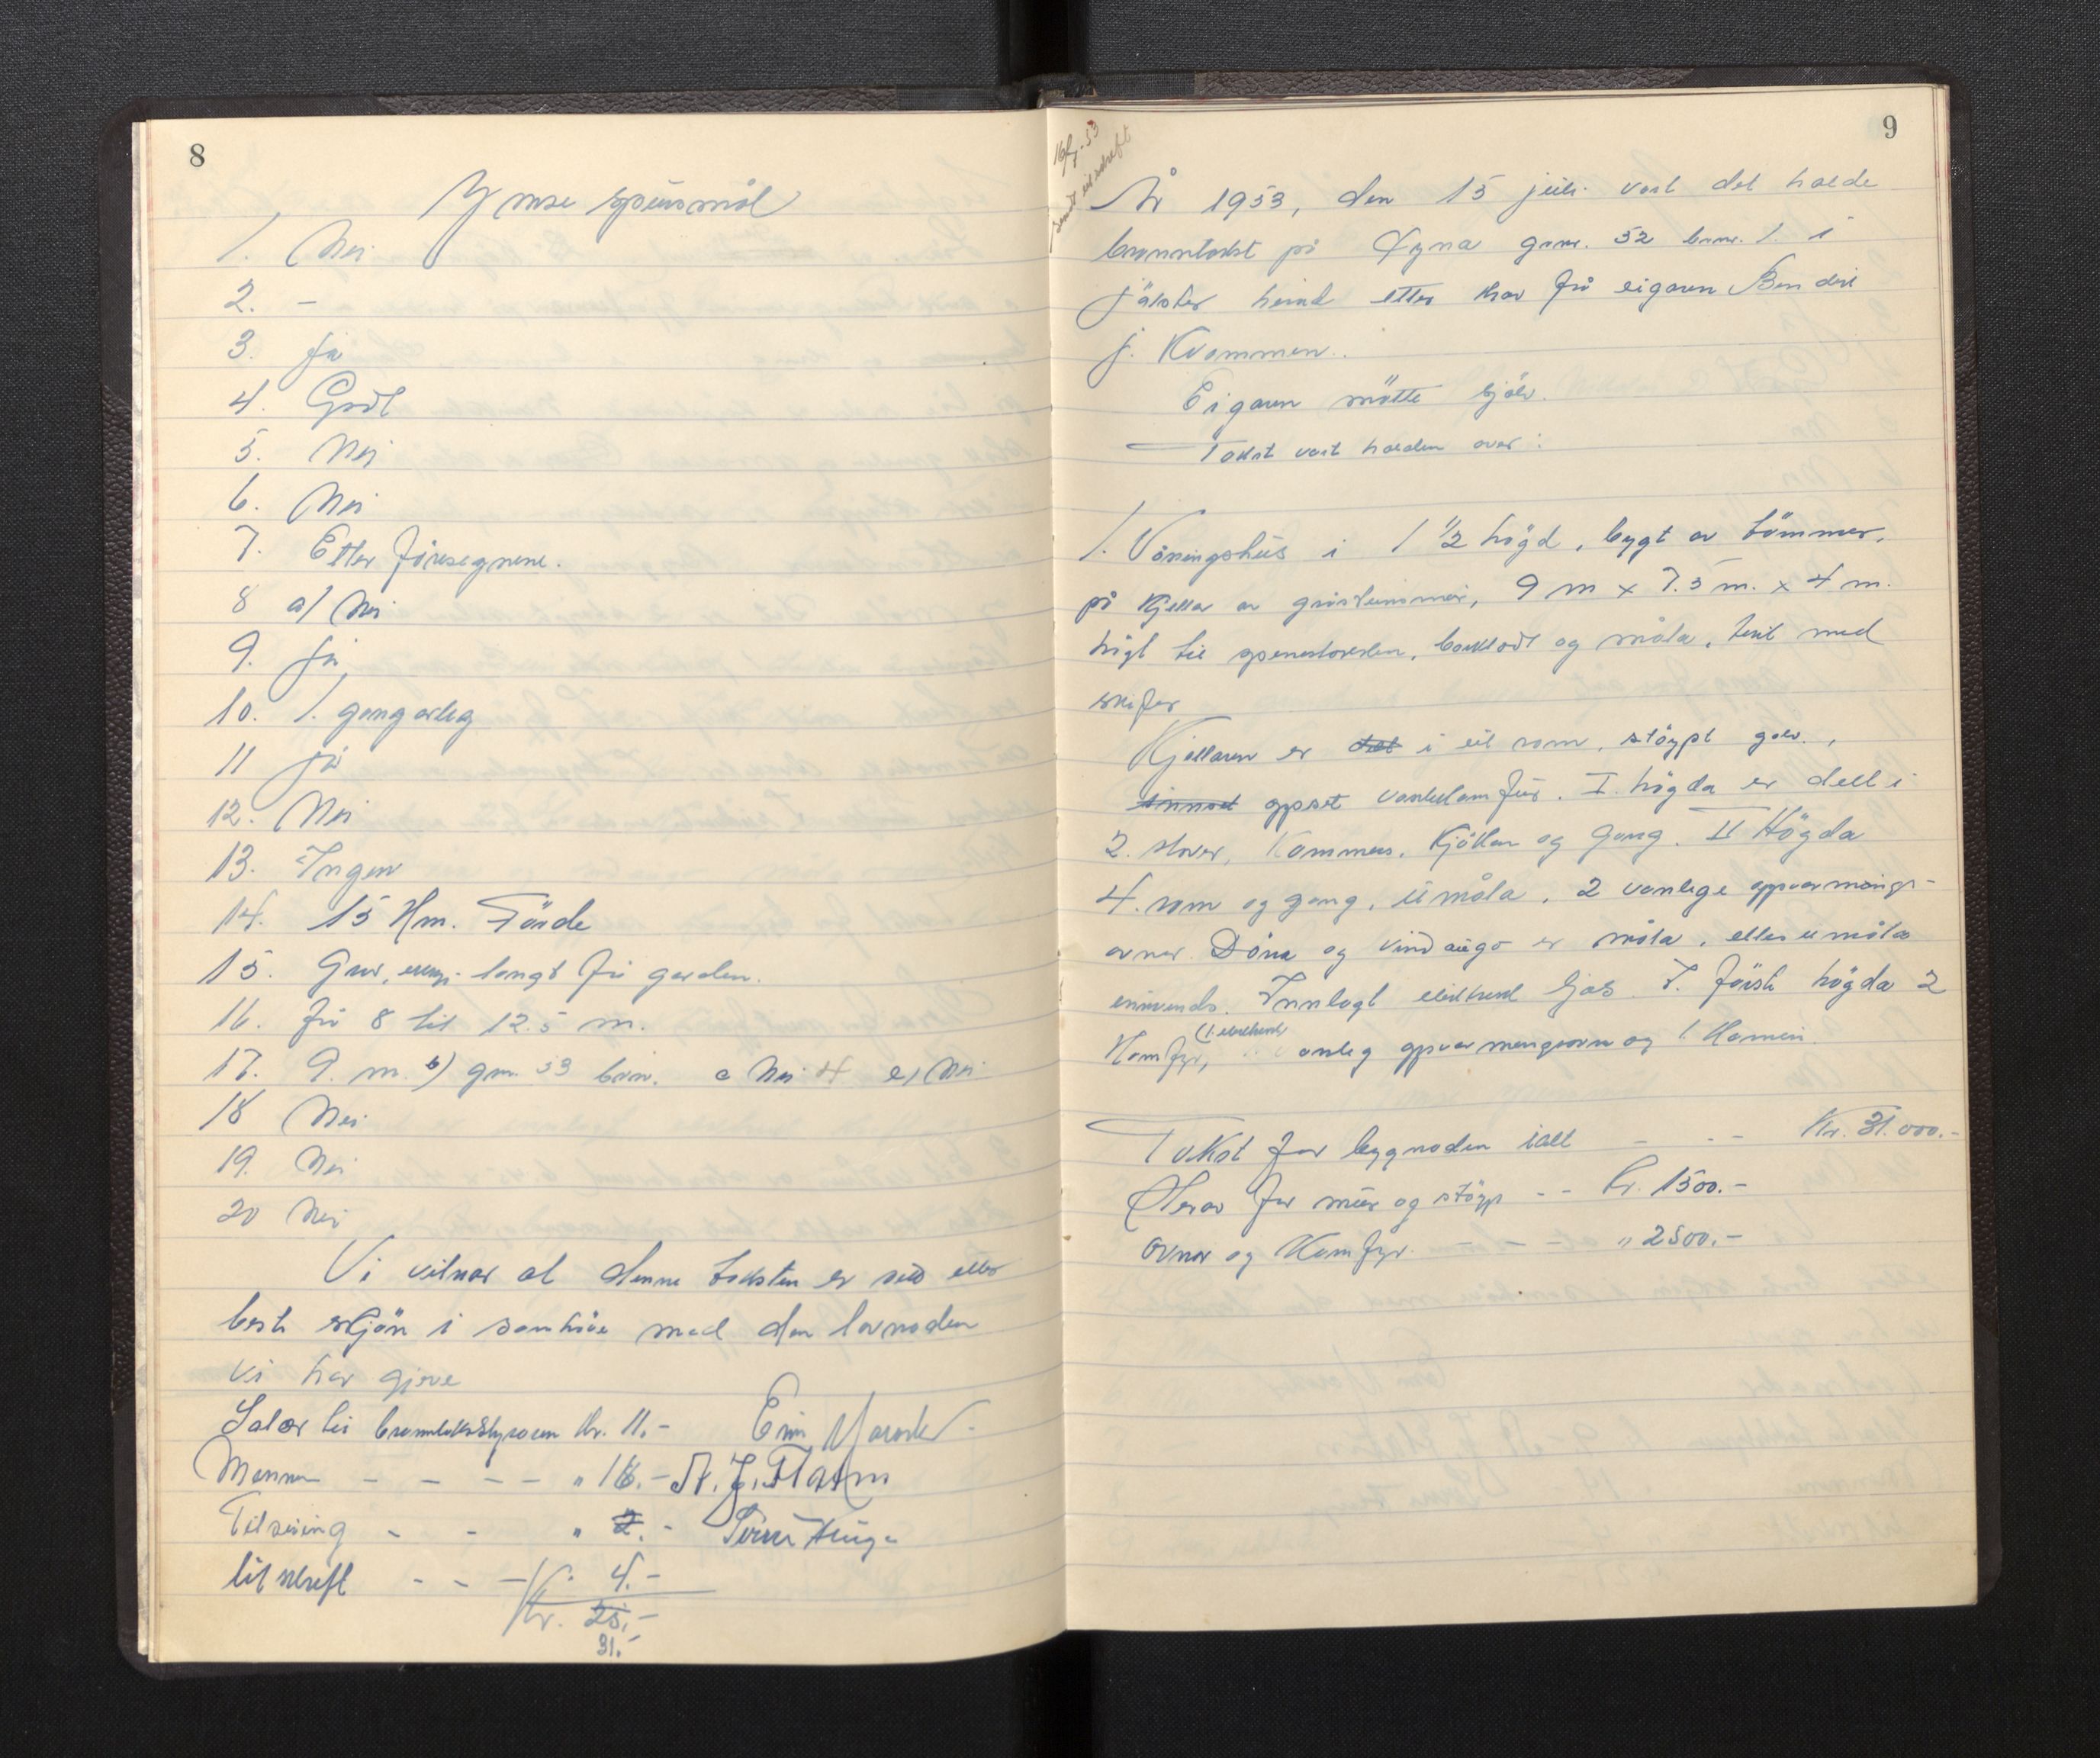 8
Ymse spursmål
1. Nei
2. –
3. Ja
4. Godt
5. Nei
6. Nei
7. Etter føresegnene.
8 a) Nei
9. Ja
10. 1. gong årleg
11 Ja
12. Nei
13. Ingen
14. 15 Km. Förde
15. langt frå garden.
16. frå 8 til 12.5 m.
17. 9. m. b) gnr. 53 bnr. c Nei e) Nei
18 Nei
19. Nei
20 Nei
Vi vitnar at denne taksten er sett etter
beste skjön i samhöve med den lovnaden
vi har gjeve
Salær til branntakstskyrar Kr. 11.-
Menn – – – – " 16.-
Tilsining - - " 2.-
Utskrift - - – Kr. 4.-
Kr. 25.-
31.-
9
16/7-53
sendt utskrift
År 1953, den 15 juli vart det halde
branntakst på Kyna gnr. 52 bnr. 1. i
Jölster herad etter krav frå eigaren Bendik
J. Kvammen.
Eigaren mötte sjölv.
Takst vart halden over:
1. Våningshus i 1 1/2 högd, bygt av tömmer,
på kjellar av gråsteinsmur, 9 m x 7.5 m. x 4 m.
högt til mønestokken, bordkledt og måla, tekt med
skifer
Kjellaren er delt i eit rom, støypt golv.,
innsat oppsat vaskelamfur. I. högda er delt i
2. stover, Kammers, Kjöken og gang. II Högda
4. rom og gang, umåla, 2 vanlege oppvarmings-
ovnar. Döra og vindaugo er måla, elles umåla
innvendes. Innlagt elektrisk ljos. I. förste högda 2
Komfyr, (1. elektrisk) vanleg oppvarmingsovn og 1 Kamin.
Takst for bygnaden ialt - - - Kr. 31.000.-
Herav for mur og støyp - - kr. 1500.-
Ovnar og Komfyr - - - - " 2500.-